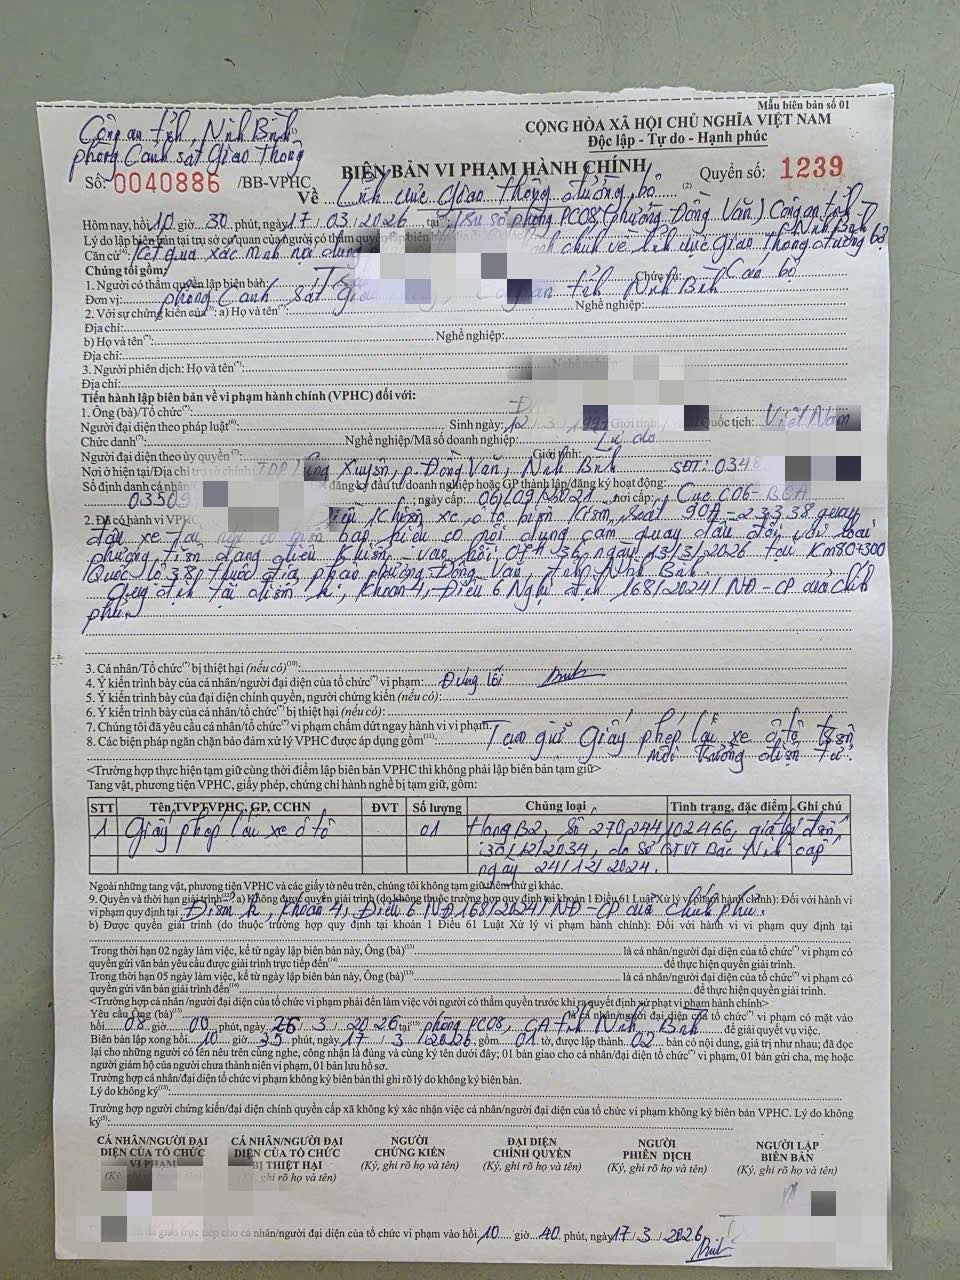 Mẫu biên bản số 01
Công an tỉnh Ninh Bình
CỘNG HÒA XÃ HỘI CHỦ NGHĨA VIỆT NAM
phòng Cảnh sát Giao Thông
Độc lập - Tự do - Hạnh phúc
Số: 0040886 /BB-VPHC
BIÊN BẢN VI PHẠM HÀNH CHÍNH
Quyển số: 1239
Về Lĩnh vực giao thông đường bộ (2)
Hôm nay, hồi 10 giờ 30 phút, ngày 17/03/2026 tại Trụ sở phòng PC08 (phường Đồng Văn) Công an tỉnh Ninh Bình
Lý do lập biên bản tại trụ sở cơ quan của người có thẩm quyền lập biên bản
Căn cứ: Kết quả xác minh nội dung chính về lĩnh vực giao thông đường bộ
Chúng tôi gồm:
1. Người có thẩm quyền lập biên bản: Chức vụ: Cán bộ
Đơn vị: phòng Cảnh sát Công an tỉnh Ninh Bình
2. Với sự chứng kiến của: a) Họ và tên(*): Nghề nghiệp:
Địa chỉ:
b) Họ và tên(*): Nghề nghiệp:
Địa chỉ:
3. Người phiên dịch: Họ và tên(*): Nghề nghiệp:
Địa chỉ:
Tiến hành lập biên bản về vi phạm hành chính (VPHC) đối với:
1. Ông (bà)/Tổ chức(*):
Người đại diện theo pháp luật(6): Sinh ngày: 12/3/199 Giới tính: Quốc tịch: Việt Nam
Chức danh(7): Nghề nghiệp/Mã số doanh nghiệp: Tự do
Người đại diện theo ủy quyền(*): Giới tính:
Nơi ở hiện tại/Địa chỉ trụ sở chính: TDP Xuyên, p. Đồng Văn, Ninh Bình SĐT: 0348
Số định danh cá nhân đăng ký đầu tư/doanh nghiệp hoặc GP thành lập/đăng ký hoạt động:
03509 ; ngày cấp: 06/09/2021 nơi cấp: Cục C06-BCA
2. Đã có hành vi VPHC điều khiển xe ô tô biển kiểm soát 90A-233.38 quay
đầu xe tại nơi có biển báo hiệu có nội dung cấm quay đầu đối với loại
phương tiện đang điều khiển - vào hồi 07h36 ngày 13/3/2026 tại Km80+300
Quốc lộ 38, thuộc địa phận phường Đồng Văn, tỉnh Ninh Bình
Quy định tại điểm k, khoản 4, Điều 6 Nghị định 168/2024/NĐ-CP của Chính
phủ.
3. Cá nhân/Tổ chức(*) bị thiệt hại (nếu có)(10):
4. Ý kiến trình bày của cá nhân/người đại diện của tổ chức(*) vi phạm: Đúng lỗi
5. Ý kiến trình bày của đại diện chính quyền, người chứng kiến (nếu có):
6. Ý kiến trình bày của cá nhân/tổ chức(*) bị thiệt hại (nếu có):
7. Chúng tôi đã yêu cầu cá nhân/tổ chức(*) vi phạm chấm dứt ngay hành vi vi phạm.
8. Các biện pháp ngăn chặn bảo đảm xử lý VPHC được áp dụng gồm(11): Tạm giữ Giấy phép lái xe ô tô trên
môi trường điện tử.
<Trường hợp thực hiện tạm giữ cùng thời điểm lập biên bản VPHC thì không phải lập biên bản tạm giữ>
Tang vật, phương tiện VPHC, giấy phép, chứng chỉ hành nghề bị tạm giữ, gồm:
STT Tên TVPTVPHC, GP, CCHN ĐVT Số lượng Chủng loại Tình trạng, đặc điểm Ghi chú
1 Giấy phép lái xe ô tô 01 Hạng B2, số 270244102466, giá trị đến
30/12/2034, do Sở GTVT Bắc Ninh cấp
ngày 24/12/2024.
Ngoài những tang vật, phương tiện VPHC và các giấy tờ nêu trên, chúng tôi không tạm giữ thêm thứ gì khác.
9. Quyền và thời hạn giải trình(12): a) Không được quyền giải trình (do không thuộc trường hợp quy định tại khoản 1 Điều 61 Luật Xử lý vi phạm hành chính): Đối với hành vi
vi phạm quy định tại Điểm k, Khoản 4, Điều 6 NĐ 168/2024/NĐ-CP của Chính phủ.
b) Được quyền giải trình (do thuộc trường hợp quy định tại khoản 1 Điều 61 Luật Xử lý vi phạm hành chính): Đối với hành vi vi phạm quy định tại
Trong thời hạn 02 ngày làm việc, kể từ ngày lập biên bản này, Ông (bà)(13) là cá nhân/đại diện của tổ chức(*) vi phạm có
quyền gửi văn bản yêu cầu được giải trình trực tiếp đến(14) để thực hiện quyền giải trình.
Trong thời hạn 05 ngày làm việc, kể từ ngày lập biên bản này, Ông (bà)(13) là cá nhân/đại diện của tổ chức(*) vi phạm có
quyền gửi văn bản giải trình đến(14) để thực hiện quyền giải trình.
<Trường hợp cá nhân/đại diện của tổ chức vi phạm phải đến làm việc với người có thẩm quyền trước khi ra quyết định xử phạt vi phạm hành chính>
Yêu cầu Ông (bà)(13) là cá nhân/đại diện của tổ chức(*) vi phạm có mặt vào
hồi 08 giờ 00 phút, ngày 26/3/2026 tại(15) phòng PC08, CA tỉnh Ninh Bình để giải quyết vụ việc.
Biên bản lập xong hồi 10 giờ 35 phút, ngày 17/3/2026, gồm 01 tờ, được lập thành 02 bản có nội dung, giá trị như nhau; đã đọc
lại cho những người có tên nêu trên cùng nghe, công nhận là đúng và cùng ký tên dưới đây; 01 bản giao cho cá nhân/đại diện tổ chức(*) vi phạm, 01 bản gửi cha, mẹ hoặc
người giám hộ của người chưa thành niên vi phạm, 01 bản lưu hồ sơ.
Trường hợp cá nhân/đại diện của tổ chức vi phạm không ký biên bản VPHC thì ghi rõ lý do không ký biên bản.
Lý do không ký(13):
Trường hợp người chứng kiến/đại diện chính quyền cấp xã không ký xác nhận việc cá nhân/đại diện của tổ chức vi phạm không ký biên bản VPHC. Lý do không
ký(5):
CÁ NHÂN/NGƯỜI ĐẠI DIỆN CỦA TỔ CHỨC VI PHẠM
(Ký, ghi rõ họ và tên)
CÁ NHÂN/NGƯỜI ĐẠI DIỆN CỦA TỔ CHỨC BỊ THIỆT HẠI
(Ký, ghi rõ họ và tên)
NGƯỜI CHỨNG KIẾN
(Ký, ghi rõ họ và tên)
ĐẠI DIỆN CHÍNH QUYỀN
(Ký, ghi rõ họ và tên)
NGƯỜI PHIÊN DỊCH
(Ký, ghi rõ họ và tên)
NGƯỜI LẬP BIÊN BẢN
(Ký, ghi rõ họ và tên)
giao trực tiếp cho cá nhân/đại diện của tổ chức vi phạm vào hồi 10 giờ 40 phút, ngày 17/3/2026